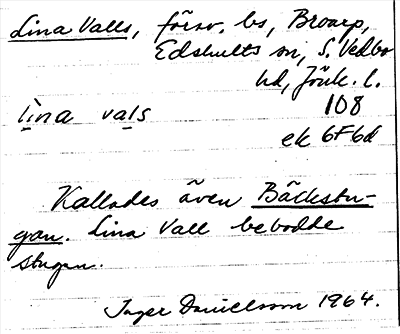 Lina Valls, försv. bs, Broarp,
Edshults sn, S. Vedbo
hd, Jönk. l.
li̱na va̱ls 108
ek 6F6d
Kallades även Bäckstu-
gan. Lina Vall bebodde
stugan.
Inger Danielsson 1964.